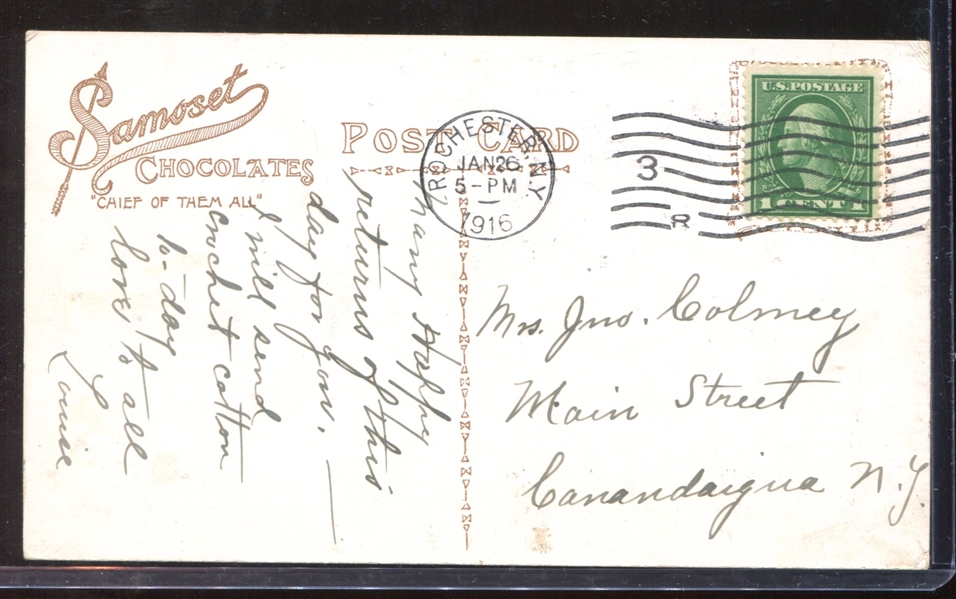 Samoset
CHOCOLATES
"CHIEF OF THEM ALL"
POST CARD
ROCHESTER, N.Y.
JAN 26
5-PM
1916
3
R
U.S. POSTAGE
1 CENT 1
Many Happy
returns of this
day for you. —
I will send
crochet cotton
to-day
love to all
Louise
Mrs. Jno. Colmey
Main Street
Canandaigua N.Y.